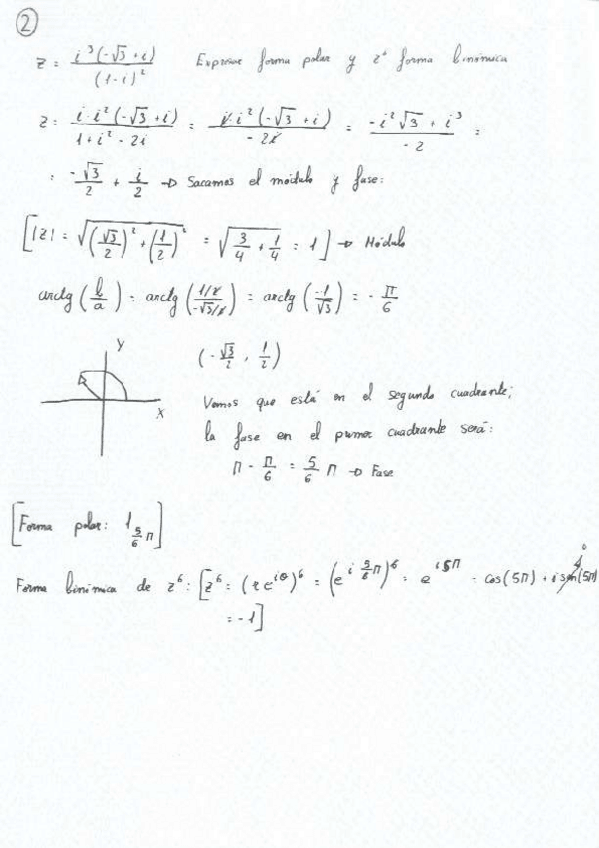 2
z = \frac{i^3(-\sqrt{3}+i)}{(1-i)^2} Expresar forma polar y z^6 forma binómica
z = \frac{i \cdot i^2(-\sqrt{3}+i)}{1+i^2-2i} = \frac{i \cdot i^2(-\sqrt{3}+i)}{-2i} = \frac{-i^2\sqrt{3}+i^3}{-2} =
= \frac{-\sqrt{3}}{2} + \frac{i}{2} → Sacamos el módulo y fase:
[|z| = \sqrt{(\frac{\sqrt{3}}{2})^2+(\frac{1}{2})^2} = \sqrt{\frac{3}{4}+\frac{1}{4}} = 1] → Módulo
arctg(\frac{b}{a}) = arctg(\frac{1/2}{-\sqrt{3}/2}) = arctg(\frac{-1}{\sqrt{3}}) = -\frac{π}{6}
y
x
(-\frac{\sqrt{3}}{2}, \frac{1}{2})
Vemos que está en el segundo cuadrante;
la fase en el primer cuadrante será:
π - \frac{π}{6} = \frac{5}{6}π → Fase
[Forma polar: 1_{\frac{5}{6}π}]
Forma binómica de z^6: [z^6 = (re^{iθ})^6 = (e^{i\frac{5}{6}π})^6 = e^{i5π} = cos(5π) + i sen(5π) 0
= -1]